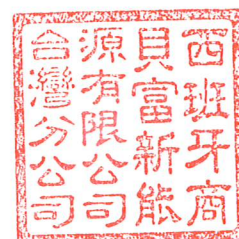 西班牙商
貝富新能
源有限公司
台灣分公司